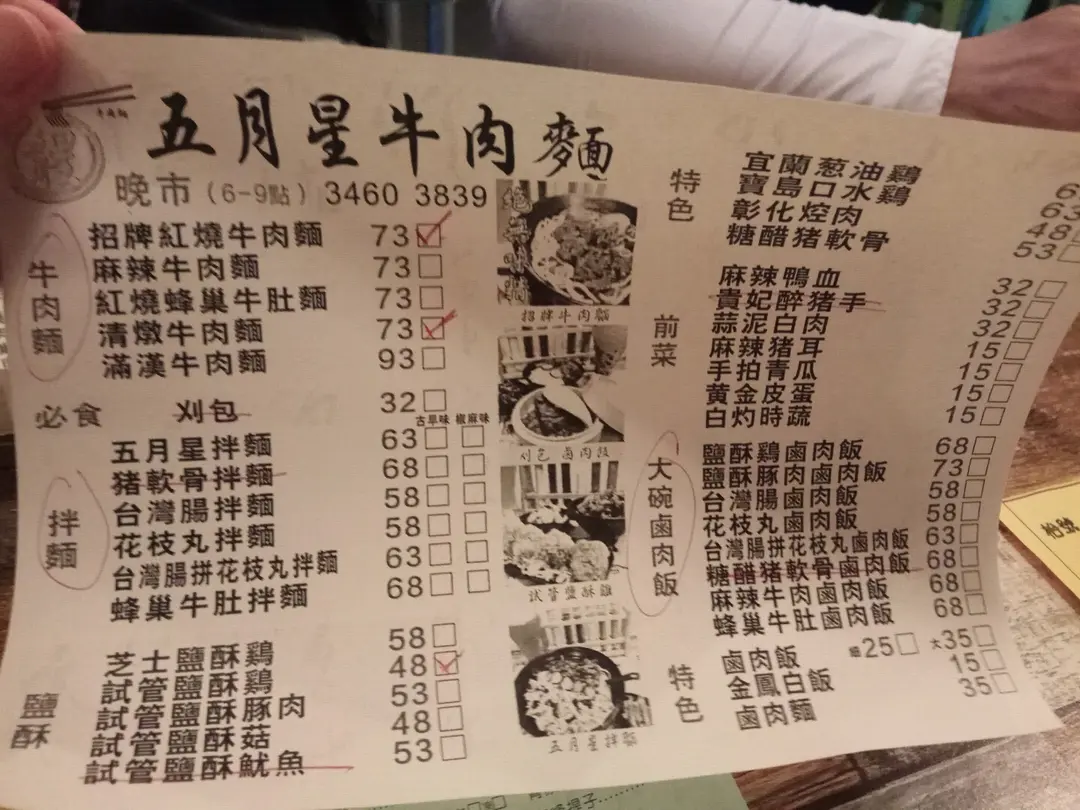 五月星牛肉麵
晚市（6-9點）3460 3839
牛肉麵
招牌紅燒牛肉麵 73
麻辣牛肉麵 73
紅燒蜂巢牛肚麵 73
清燉牛肉麵 73
滿漢牛肉麵 93
必食 刈包 32
古早味 椒麻味
拌麵
五月星拌麵 63
猪軟骨拌麵 68
台灣腸拌麵 58
花枝丸拌麵 58
台灣腸拼花枝丸拌麵 63
蜂巢牛肚拌麵 68
鹽酥
芝士鹽酥鷄 58
試管鹽酥鷄 48
試管鹽酥豚肉 53
試管鹽酥菇 48
試管鹽酥魷魚 53
招牌牛肉麵
刈包 鹵肉飯
試管鹽酥雞
五月星拌麵
特色
宜蘭葱油鷄
寶島口水鷄 63
彰化焢肉 48
糖醋猪軟骨 53
前菜
麻辣鴨血 32
貴妃醉猪手 32
蒜泥白肉 32
麻辣猪耳 15
手拍青瓜 15
黄金皮蛋 15
白灼時蔬 15
大碗鹵肉飯
鹽酥鷄鹵肉飯 68
鹽酥豚肉鹵肉飯 73
台灣腸鹵肉飯 58
花枝丸鹵肉飯 58
台灣腸拼花枝丸鹵肉飯 63
糖醋猪軟骨鹵肉飯 68
麻辣牛肉鹵肉飯 68
蜂巢牛肚鹵肉飯 68
特色
鹵肉飯 細25 大35
金鳳白飯 15
鹵肉麵 35